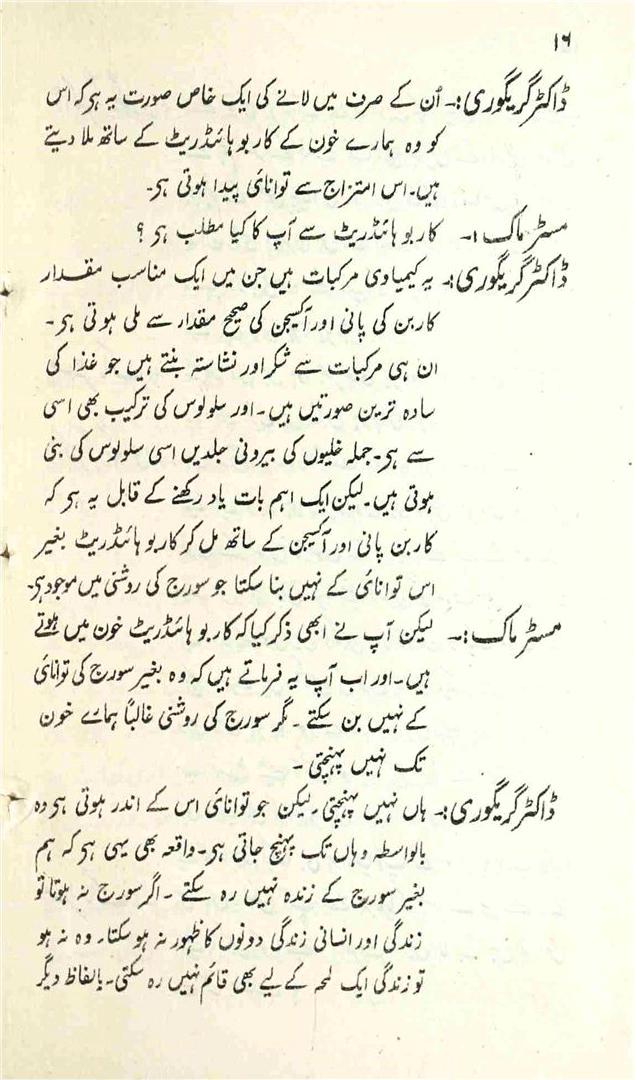 ۱۶
ڈاکٹر گریگوری:۔ اُن کے صرف میں لانے کی ایک خاص صورت یہ ہر کہ اس
کو وہ ہمارے خون کے کاربوہائڈریٹ کے ساتھ ملا دیتے
ہیں۔ اس امتزاج سے توانائی پیدا ہوتی ہر۔
مسٹر ماک :۔ کاربوہائڈریٹ سے آپ کا کیا مطلب ہر ؟
ڈاکٹر گریگوری:۔ یہ کیمیاوی مرکبات ہیں جن میں ایک مناسب مقدار
کاربن کی پانی اور آکسیجن کی صحیح مقدار سے ملی ہوتی ہر۔
ان ہی مرکبات سے شکر اور نشاستہ بنتے ہیں جو غذا کی
سادہ ترین صورتیں ہیں۔ اور سلولوس کی ترکیب بھی اسی
سے ہر۔ جملہ خلیوں کی بیرونی جلدیں اسی سلولوس کی بنی
ہوتی ہیں۔ لیکن ایک اہم بات یاد رکھنے کے قابل یہ ہر کہ
کاربن پانی اور آکسیجن کے ساتھ مل کر کاربوہائڈریٹ بغیر
اس توانائی کے نہیں بنا سکتا جو سورج کی روشنی میں موجود ہر۔
مسٹر ماک :۔ لیکن آپ نے ابھی ذکر کیا کہ کاربوہائڈریٹ خون میں ہوتے
ہیں۔ اور اب آپ یہ فرماتے ہیں کہ وہ بغیر سورج کی توانائی
کے نہیں بن سکتے ۔ مگر سورج کی روشنی غالباً ہمارے خون
تک نہیں پہنچتی ۔
ڈاکٹر گریگوری:۔ ہاں نہیں پہنچتی۔ لیکن جو توانائی اس کے اندر ہوتی ہر وہ
بالواسطہ وہاں تک پہنچ جاتی ہر۔ واقعہ بھی یہی ہر کہ ہم
بغیر سورج کے زندہ نہیں رہ سکتے ۔ اگر سورج نہ ہوتا تو
زندگی اور انسانی زندگی دونوں کا ظہور نہ ہو سکتا۔ وہ نہ ہو
تو زندگی ایک لمحہ کے لیے بھی قائم نہیں رہ سکتی۔ بالفاظ دیگر